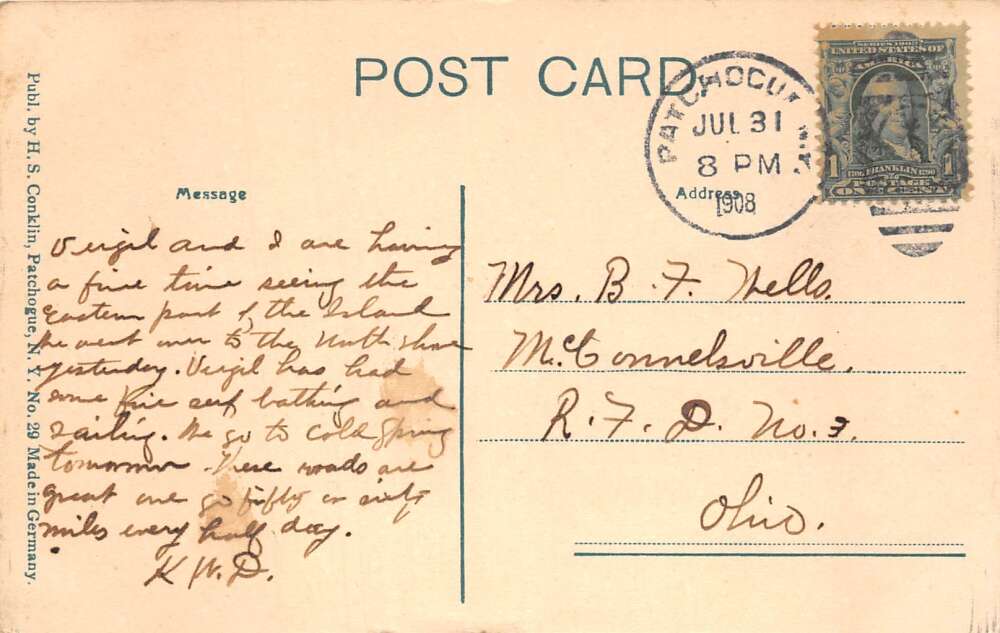 POST CARD
PATCHOGUE, N.Y.
JUL 31
8 PM
1908
SERIES 1902
UNITED STATES OF
AMERICA
1706 FRANKLIN 1790
1 POSTAGE 1
ONE CENT
Publ. by H. S. Conklin, Patchogue, N. Y. No. 29 Made in Germany.
Message
Virgil and I are having
a fine time seeing the
Eastern part of the Island
We went over to the North Shore
yesterday. Virgil has had
some fine surf bathing and
sailing. We go to Cold Spring
tomorrow. These roads are
great we go fifty or sixty
miles every half day.
K W. D.
Address
Mrs. B. F. Wells.
McConnelsville.
R. F. D. No. 3.
Ohio.